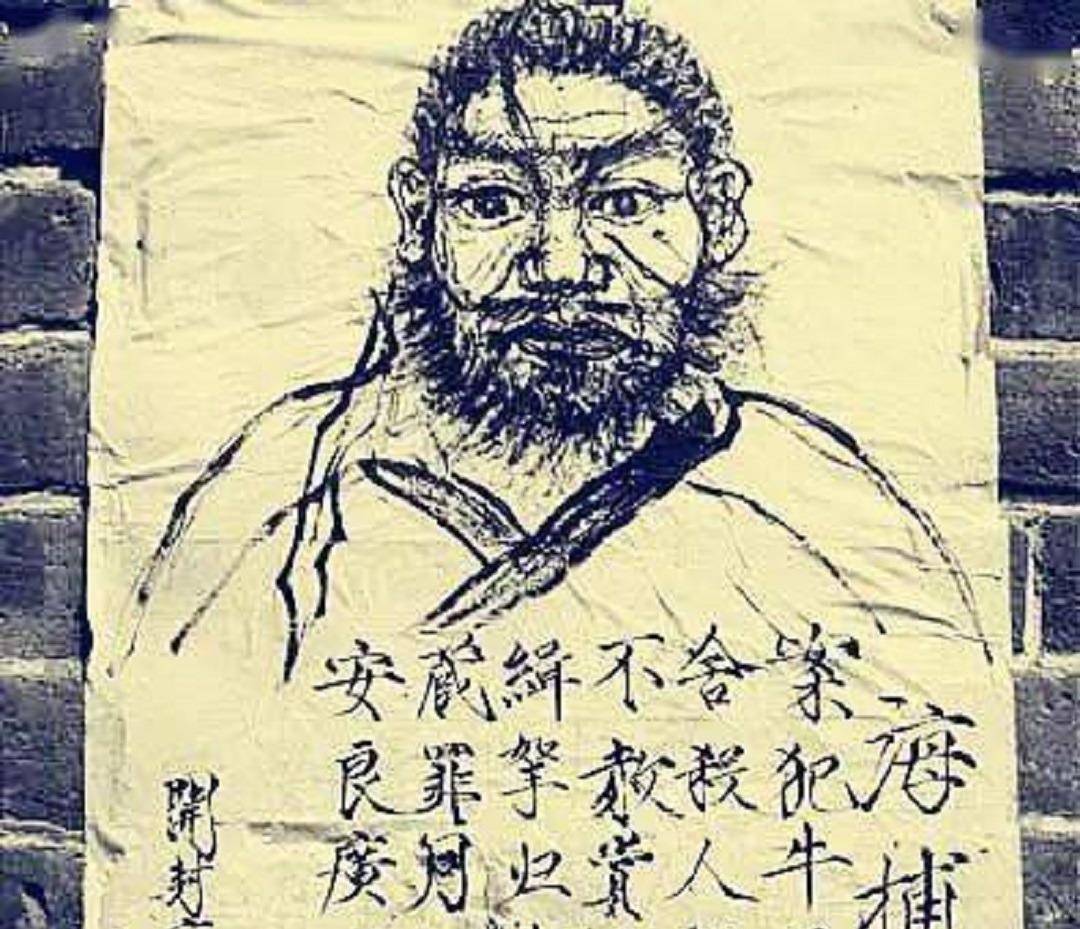 海捕
案犯牛
舍殺人
不赦賞
緝拏归
藏罪同
安良廣
開封